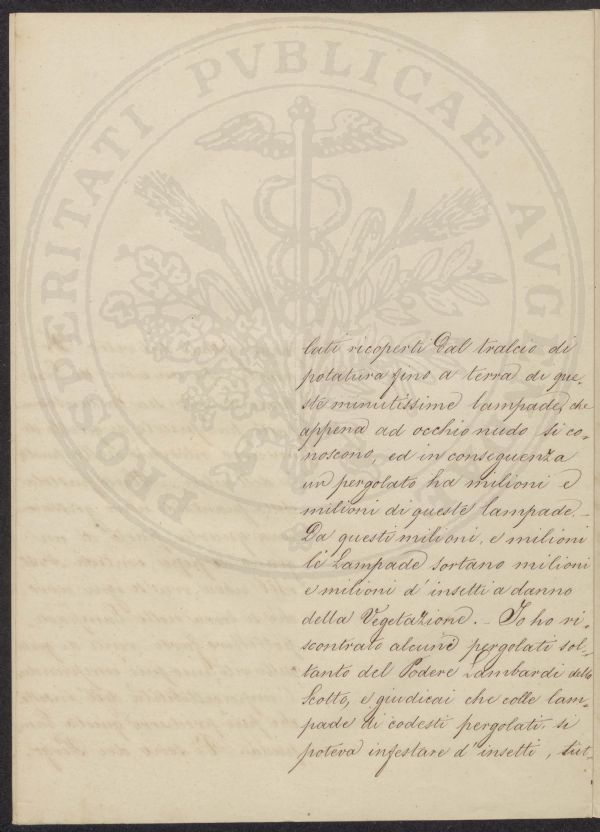 PROSPERITATI PVBLICAE AVG
lati ricoperti dal tralcio di
potatura fino a terra di que-
ste minutissime lampade, che
appena ad occhio nudo si co-
noscono, ed in conseguenza
un pergolato ha milioni e
milioni di queste lampade. -
Da questi milioni, e milioni
li Lampade sortano milioni
e milioni d'insetti a danno
della Vegetazione. - Io ho ri-
scontrato alcune pergolati sol-
tanto del Podere Lambardi dello
Scotto, e giudicai che colle lam-
pade di codesti pergolati, si
poteva infestare d'insetti, tut-